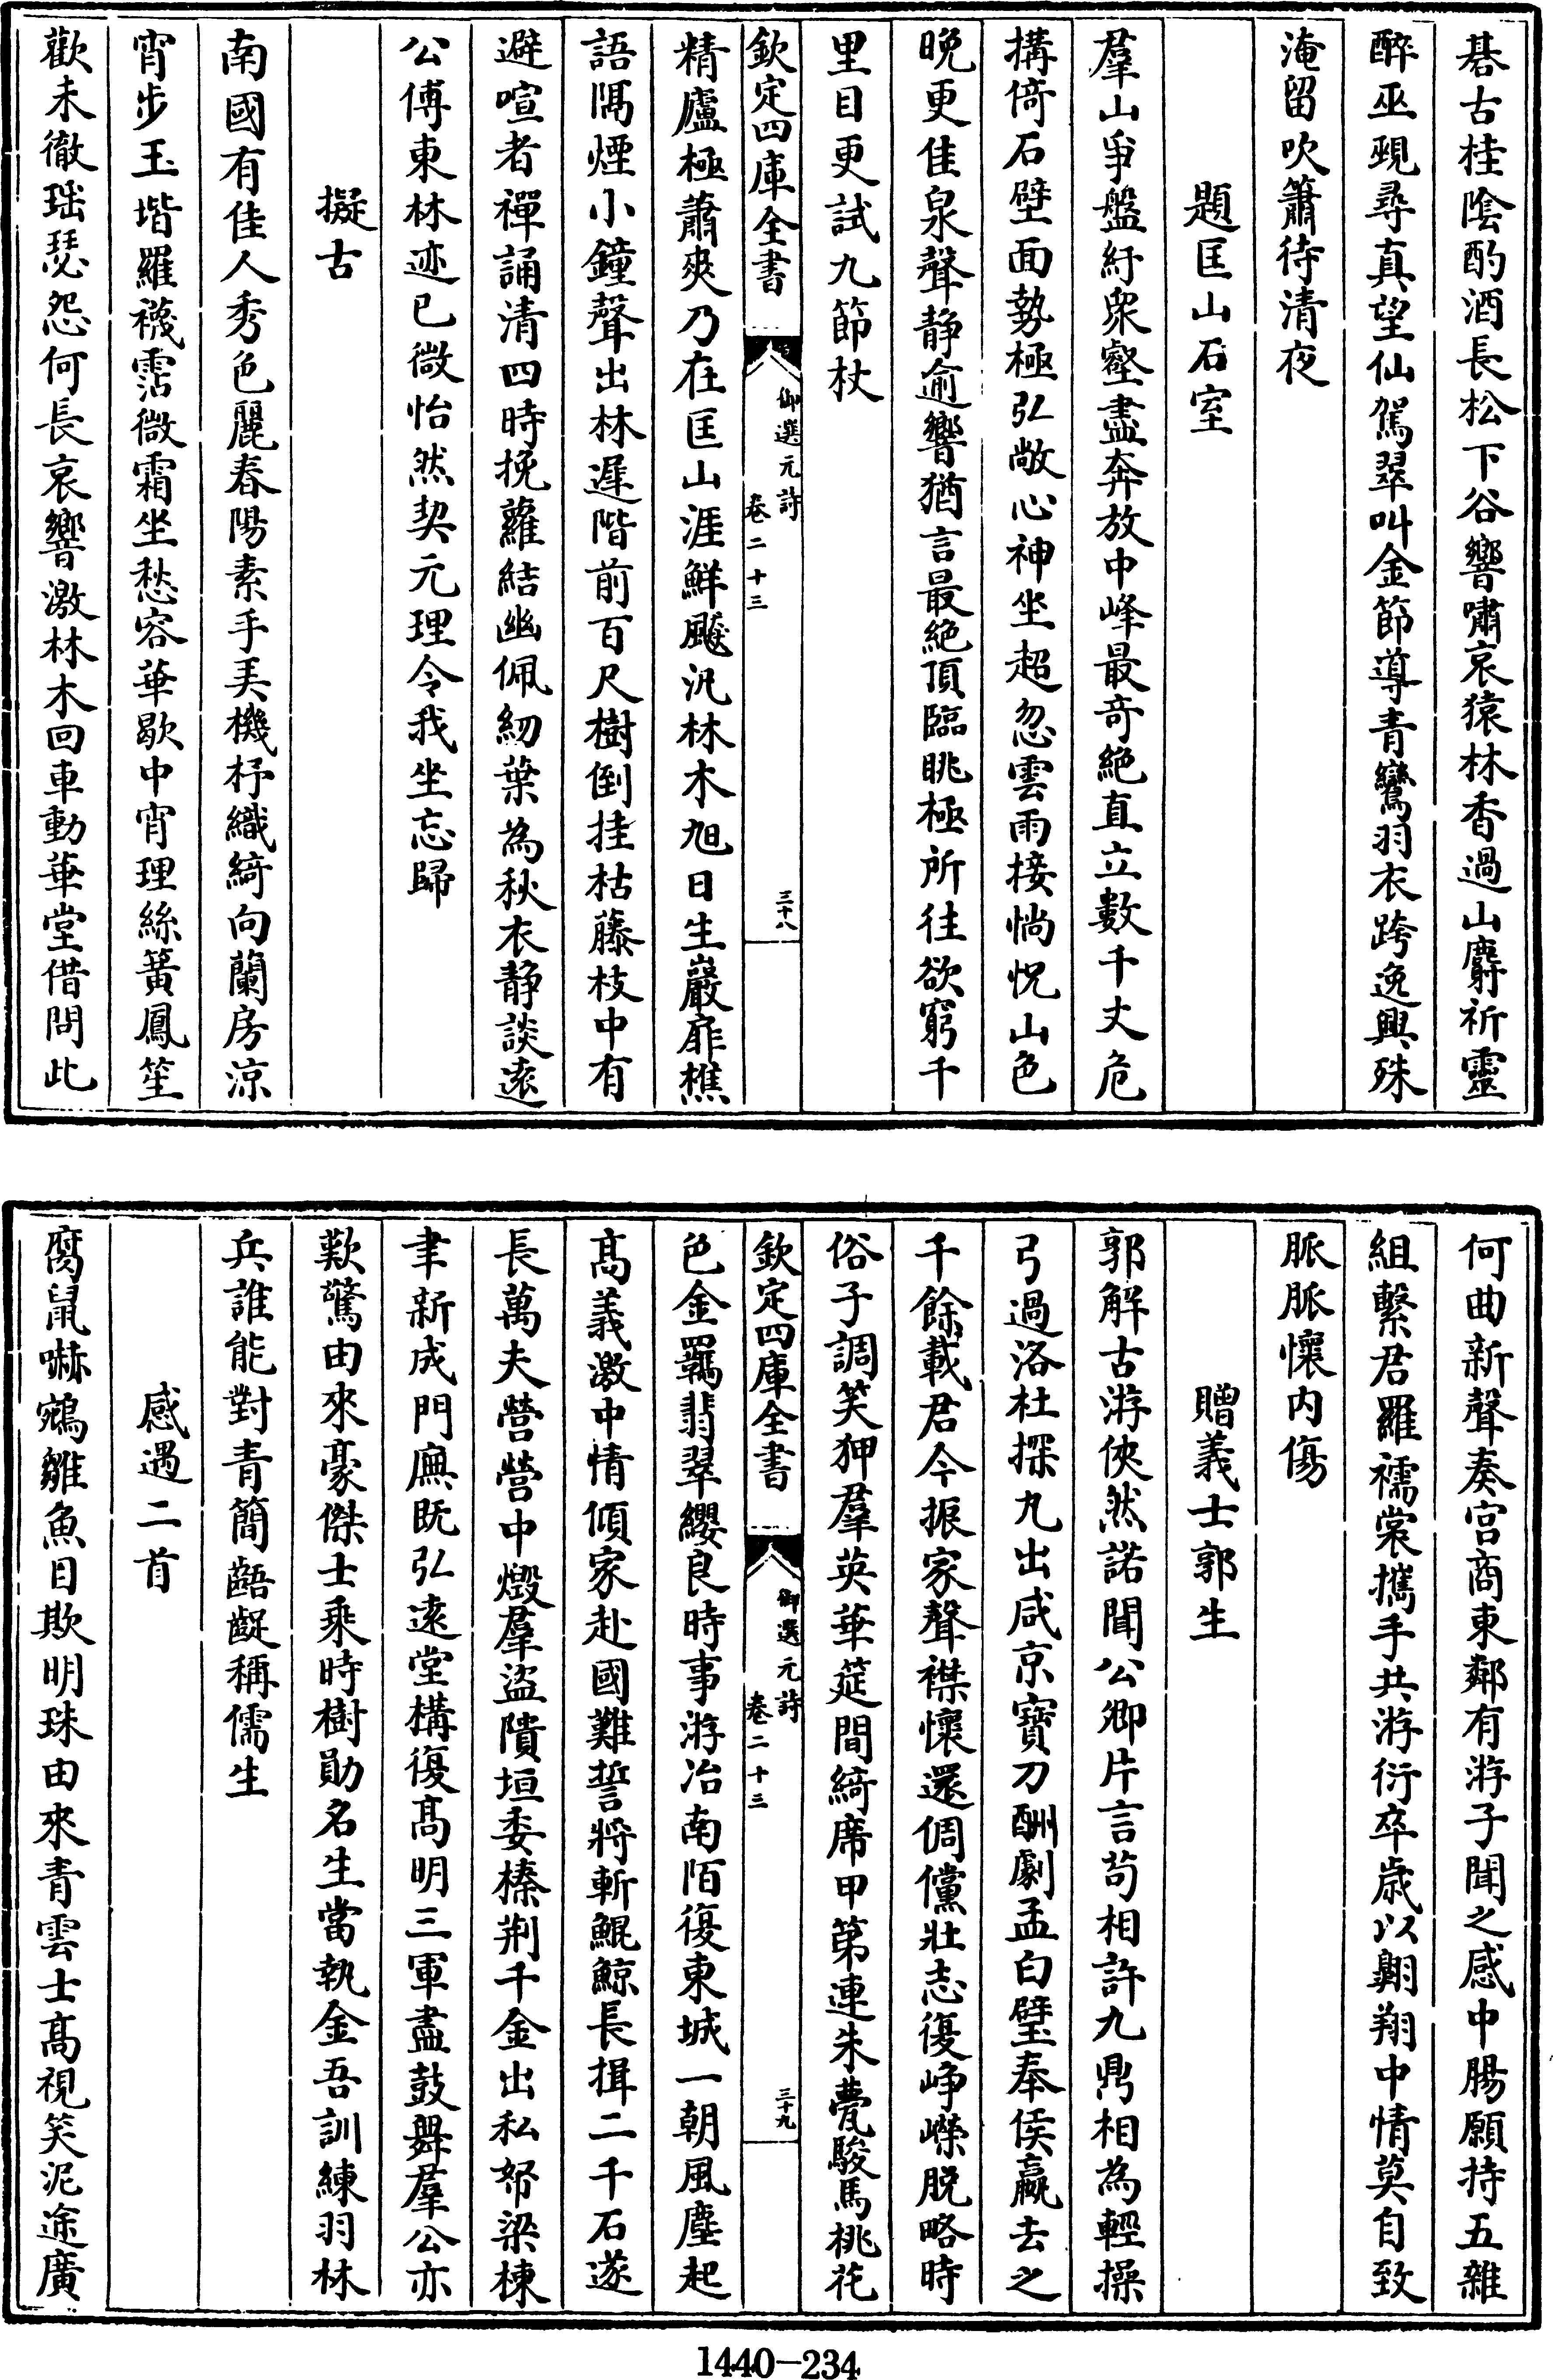 碁古桂陰酌酒長松下谷響嘯哀猿林香過山麝祈靈
醉巫覡尋真望仙駕翠叫金節導青鸞羽衣跨逸興殊
淹留吹簫待清夜
題匡山石室
羣山爭盤紆衆壑盡奔放中峰最奇絶直立數千丈危
搆倚石壁面勢極弘敞心神坐超忽雲雨接惝怳山色
晚更佳泉聲静逾響猶言最絶頂臨眺極所往欲窮千
里目更試九節杖
欽定四庫全書
御選元詩
卷二十三
三十八
精廬極蕭爽乃在匡山涯鮮飈汎林木旭日生巖扉樵
語隔煙小鐘聲出林遲階前百尺樹倒挂枯藤枝中有
避喧者禪誦清四時挽蘿結幽佩紉葉為秋衣静談遠
公傅東林迹已微怡然契元理令我坐忘歸
擬古
南國有佳人秀色麗春陽素手弄機杼織綺向蘭房涼
宵步玉堦羅襪霑微霜坐愁容華歇中宵理絲簧鳳笙
歡未徹瑶瑟怨何長哀響激林木回車動華堂借問此
何曲新聲奏宫商東鄰有游子聞之感中腸願持五雜
組繫君羅襦裳攜手共游衍卒歳以翺翔中情莫自致
脈脈懷内傷
贈義士郭生
郭解古游俠然諾聞公卿片言苟相許九鼎相為輕操
弓過洛杜探丸出咸京寶刀酬劇孟白璧奉侯嬴去之
千餘載君今振家聲襟懷還倜儻壯志復峥嶸脱略時
俗子調笑狎羣英華筵間綺席甲第連朱甍駿馬桃花
欽定四庫全書
御選元詩
卷二十三
三十九
色金羈翡翠纓良時事游冶南陌復東城一朝風塵起
髙義激中情傾家赴國難誓將斬鯤鯨長揖二千石遂
長萬夫營營中燬羣盜隤垣委榛荆千金出私帑梁棟
聿新成門廡既弘遠堂構復髙明三軍盡鼓舞羣公亦
歎驚由來豪傑士乘時樹勛名生當執金吾訓練羽林
兵誰能對青簡齬齪稱儒生
感遇二首
腐鼠嚇鵷雛魚目欺明珠由來青雲士髙視笑泥途廣
1440-234